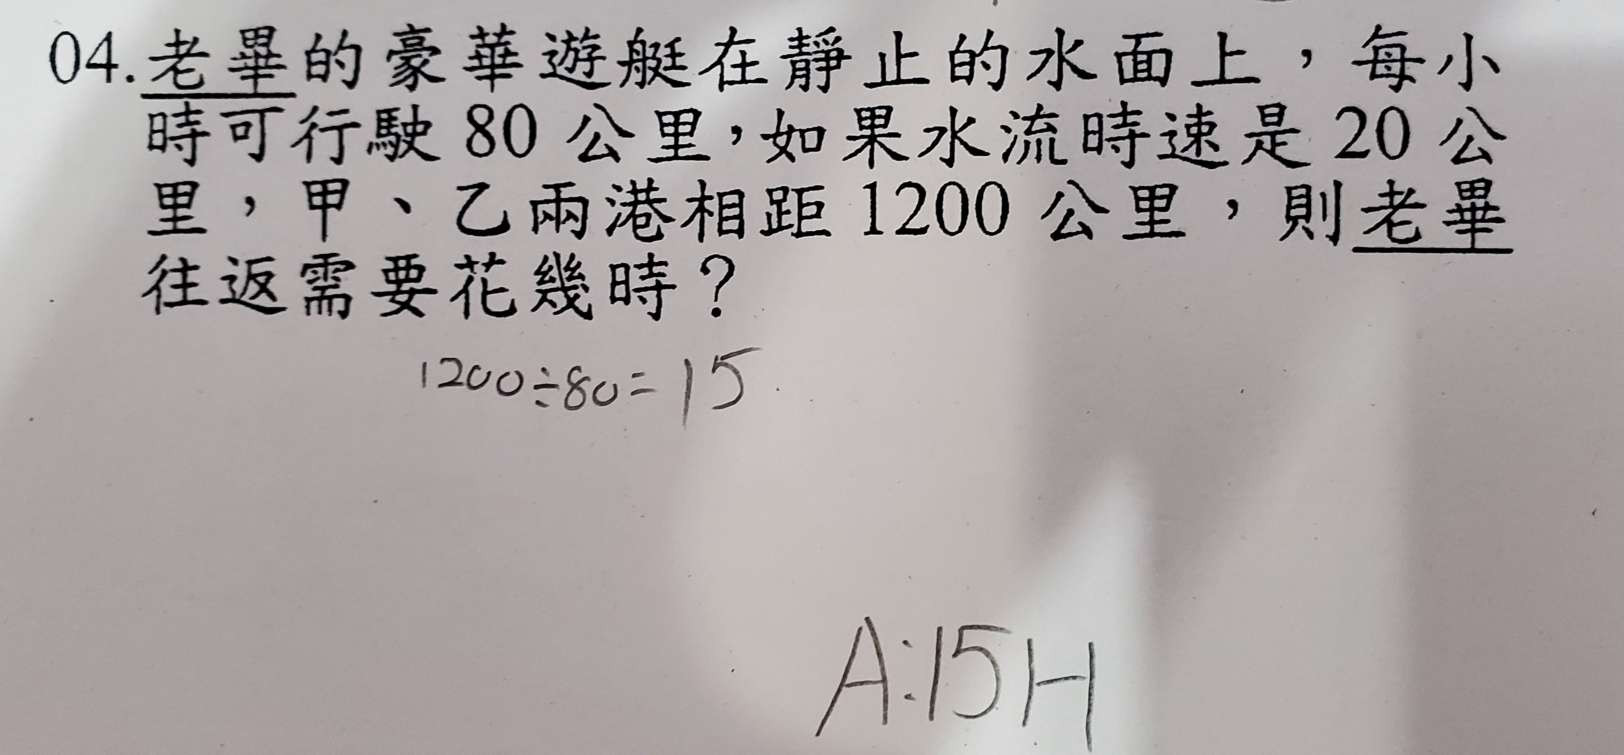 04.老畢的豪華遊艇在靜止的水面上，每小
時可行駛 80 公里，如果水流時速是 20 公
里，甲、乙兩港相距 1200 公里，則老畢
往返需要花幾時？
1200÷80=15
A:15H